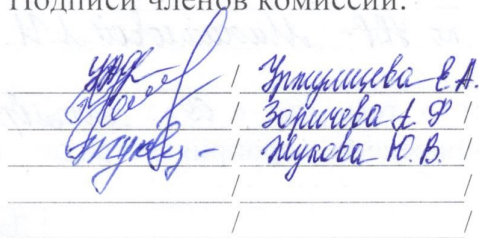 Подписи членов комиссии:
/ Е.А. /
/ Зоричева А. Ф /
/ Жукова Ю. В. /
/ /
/ /